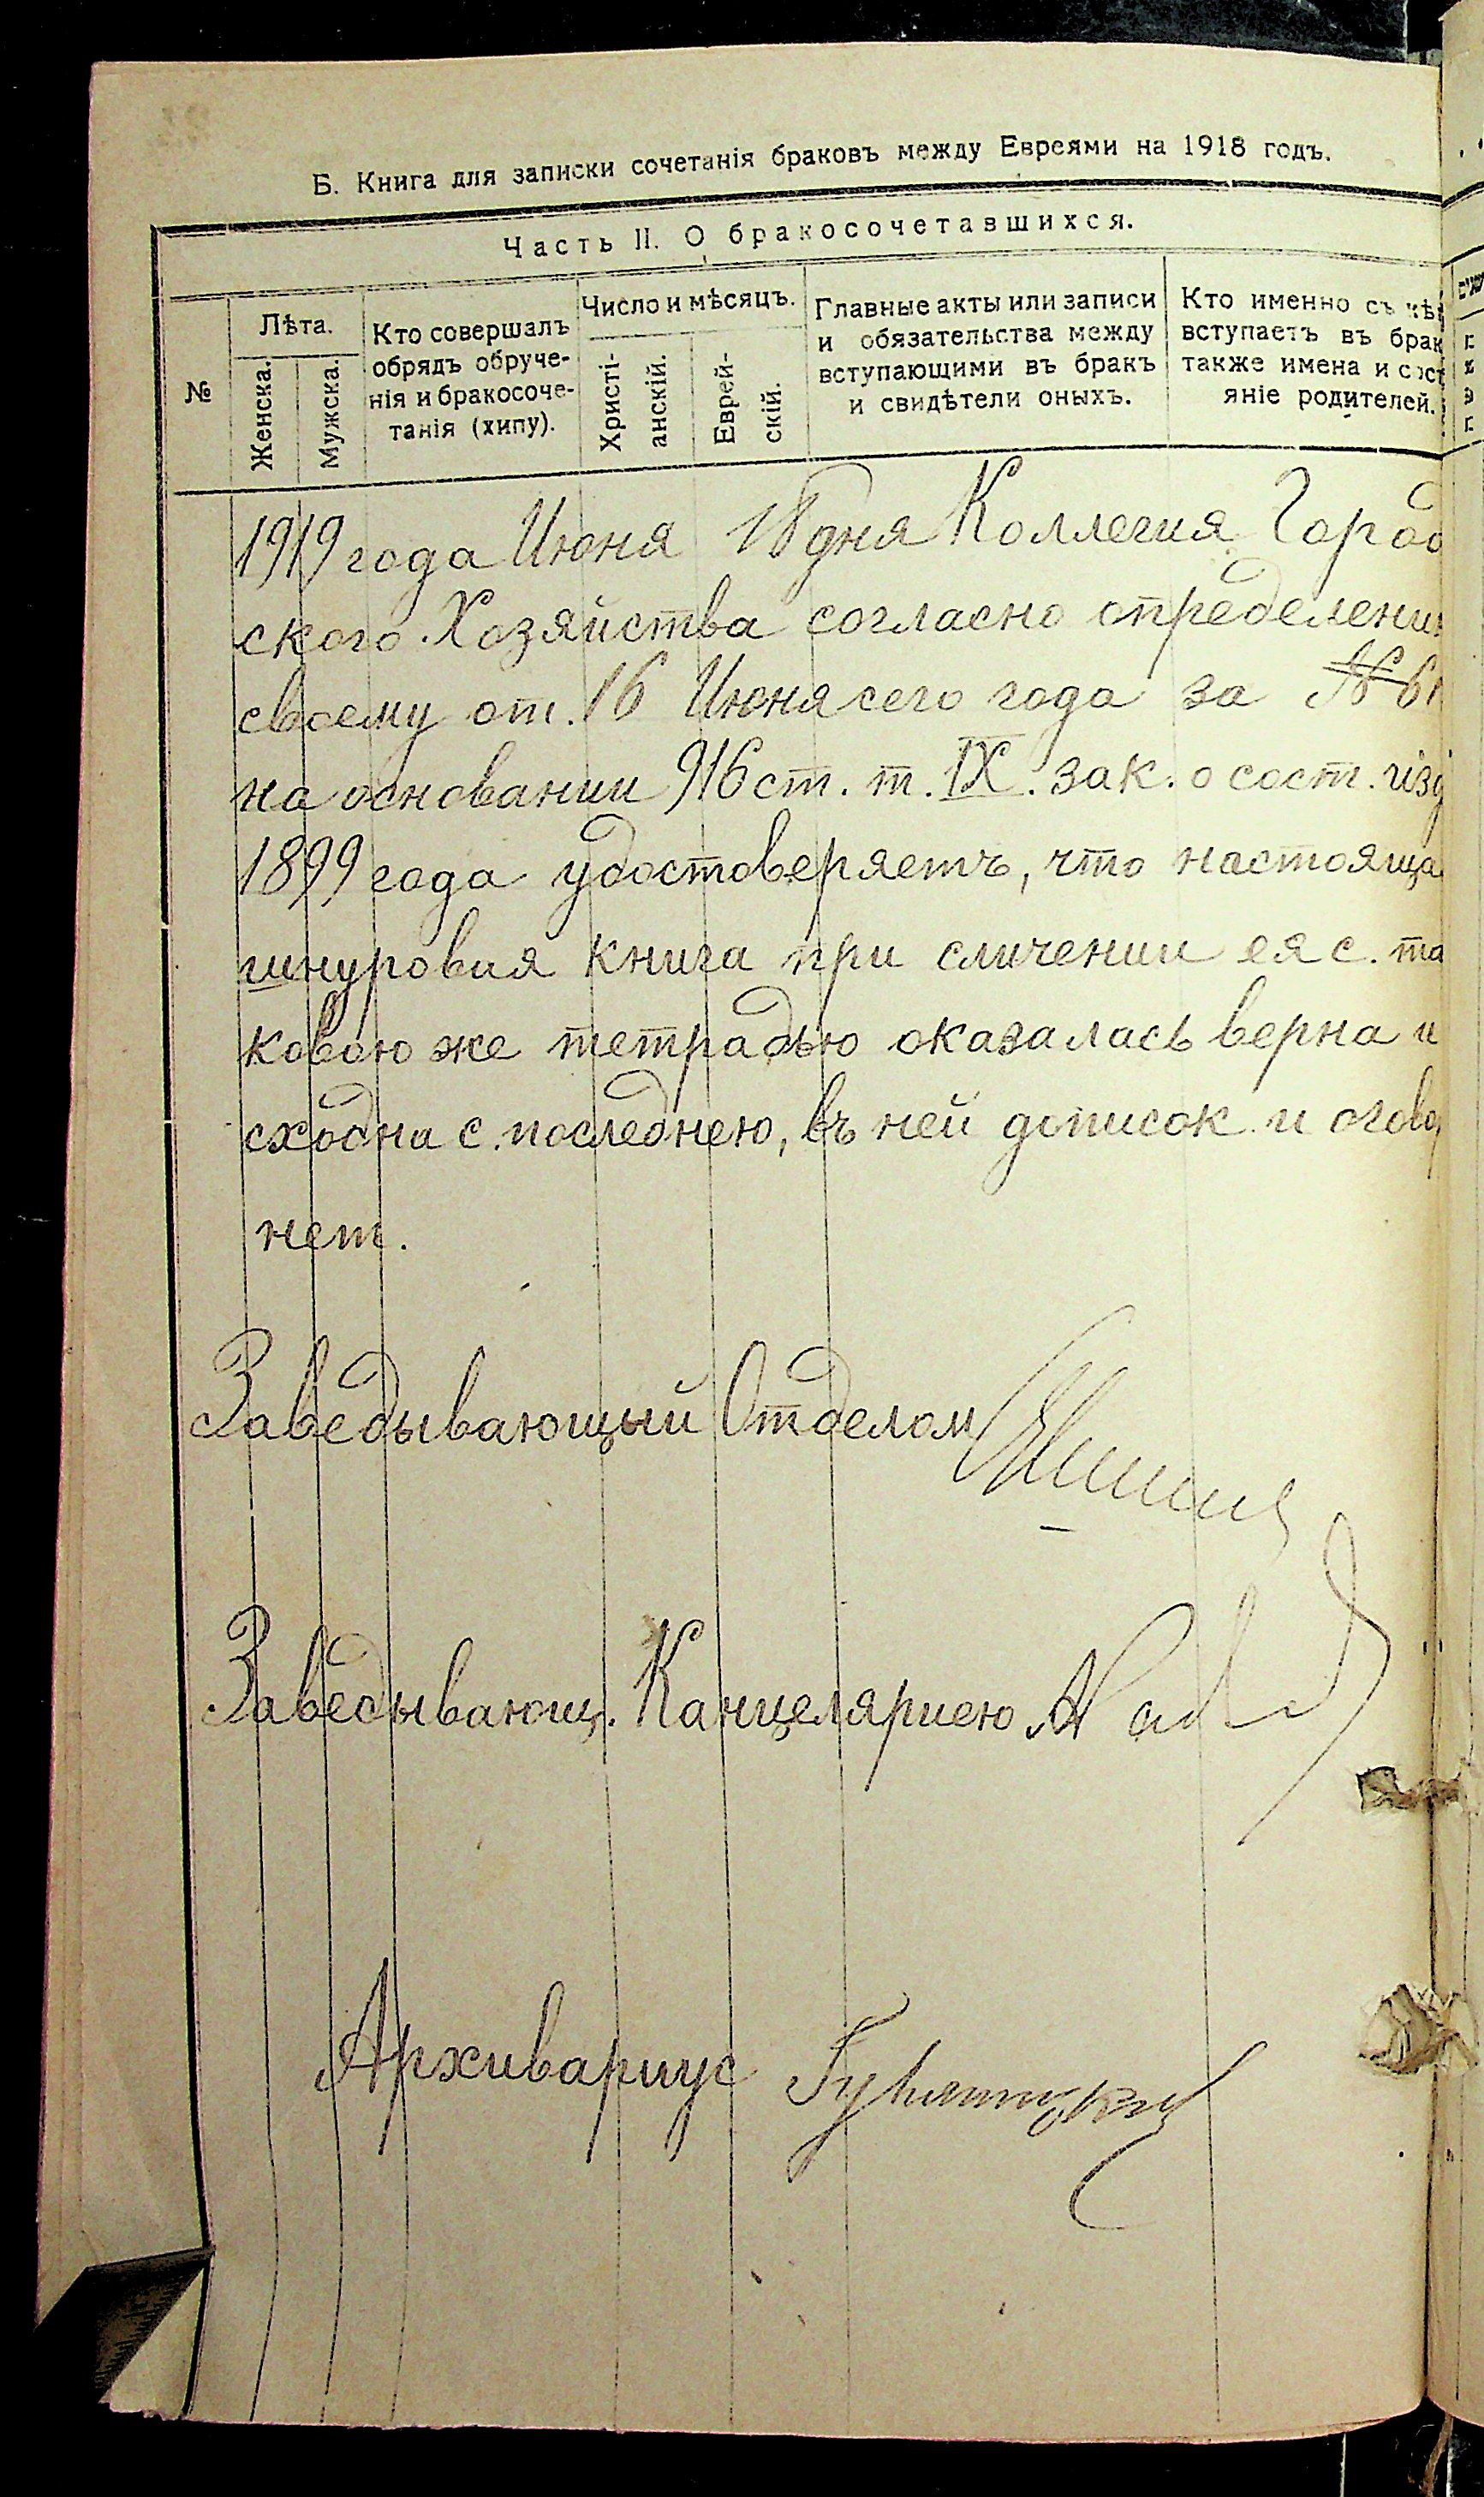 Б. Книга для записки сочетанія браковъ между Евреями на 1918 годъ.
Часть II. О бракосочетавшихся.
№
Лѣта.
Женска.
Мужска.
Кто совершалъ
обрядъ обруче-
нія и бракосоче-
танія (хипу).
Число и мѣсяцъ.
Христі-
анскій.
Еврей-
скій.
Главные акты или записи
и обязательства между
вступающими въ бракъ
и свидѣтели оныхъ.
Кто именно съ кѣ
вступаетъ въ брак
также имена и сост
яніе родителей.
1919 года Июня 18 дня Коллегия Город
ского Хозяйства согласно определени
своему от. 16 Июня сего года за №
на основании 916 ст. т. IX. зак. о сост.
1899 года удостоверяетъ, что настояща
шнуровая книга при сличении ея с. та
ковою же тетрадью оказалась верна и
сходна с. последнею, въ ней дописок и огово
нет.
Заведывающий Отделом
Заведывающ. Канцеляриею
Архивариус